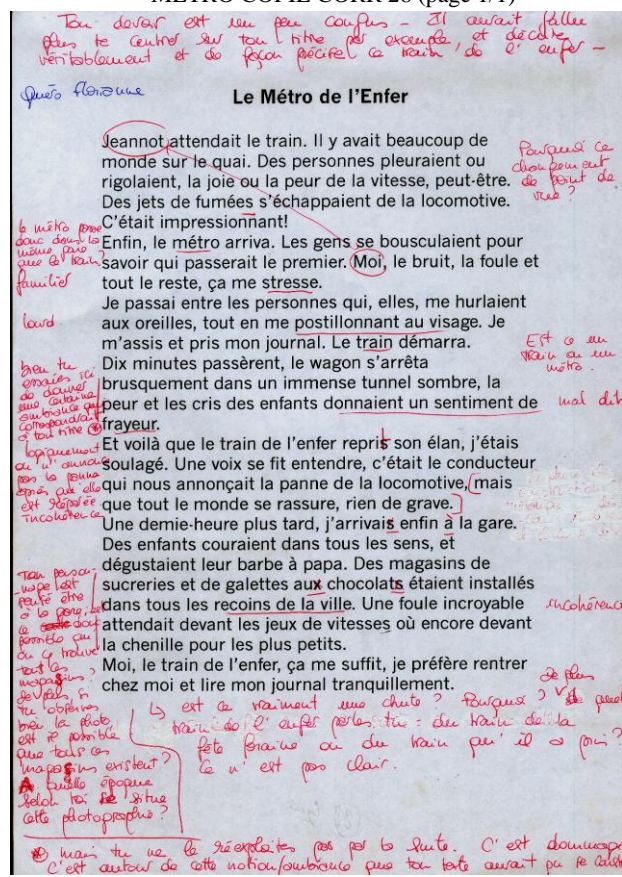 METRO COPIE CORR 28 (page 1/1)
Ton devoir est un peu confus - Il aurait fallu
plus te centrer sur ton titre par exemple, et décrire
véritablement et de façon précise ce train de l'enfer -
Florianne
Le Métro de l'Enfer
Jeannot attendait le train. Il y avait beaucoup de
monde sur le quai. Des personnes pleuraient ou
rigolaient, la joie ou la peur de la vitesse, peut-être.
Des jets de fumées s'échappaient de la locomotive.
C'était impressionnant!
Enfin, le métro arriva. Les gens se bousculaient pour
savoir qui passerait le premier. Moi, le bruit, la foule et
tout le reste, ça me stresse.
Je passai entre les personnes qui, elles, me hurlaient
aux oreilles, tout en me postillonnant au visage. Je
m'assis et pris mon journal. Le train démarra.
Dix minutes passèrent, le wagon s'arrêta
brusquement dans un immense tunnel sombre, la
peur et les cris des enfants donnaient un sentiment de
frayeur.
Et voilà que le train de l'enfer reprit son élan, j'étais
soulagé. Une voix se fit entendre, c'était le conducteur
qui nous annonçait la panne de la locomotive, mais
que tout le monde se rassure, rien de grave.
Une demie-heure plus tard, j'arrivais enfin à la gare.
Des enfants couraient dans tous les sens, et
dégustaient leur barbe à papa. Des magasins de
sucreries et de galettes aux chocolats étaient installés
dans tous les recoins de la ville. Une foule incroyable
attendait devant les jeux de vitesses où encore devant
la chenille pour les plus petits.
Moi, le train de l'enfer, ça me suffit, je préfère rentrer
chez moi et lire mon journal tranquillement.
Pourquoi ce
changement
de point de
vue ?
le métro passe
donc dans la
même gare
que le train?
familier
lourd
Est ce un
train ou un
métro.
bien tu
essaies ici
de donner
une certaine
ambiance qui
correspondrait
à ton titre
mal dit
logiquement
on n'annonce
pas la panne
après que elle
est réparée
incohérence
incohérence
Ton person-
nage est
peut être
à la gare,
possible qu'
on ce trouve
tout les
magasins,
de plus, si
tu observes
bien la photo
est ce possible
que tous ces
magasins existent?
A quelle époque
selon toi se situe
cette photographie?
est ce vraiment une chute? Pourquoi? de plus de quel
train de l'enfer parles tu : du train de la
fête foraine ou du train qu'il a pris?
Ce n'est pas clair.
mais tu ne le réexploites pas par la suite. C'est dommage
C'est autour de cette notion/ambiance que ton texte aurait pu se